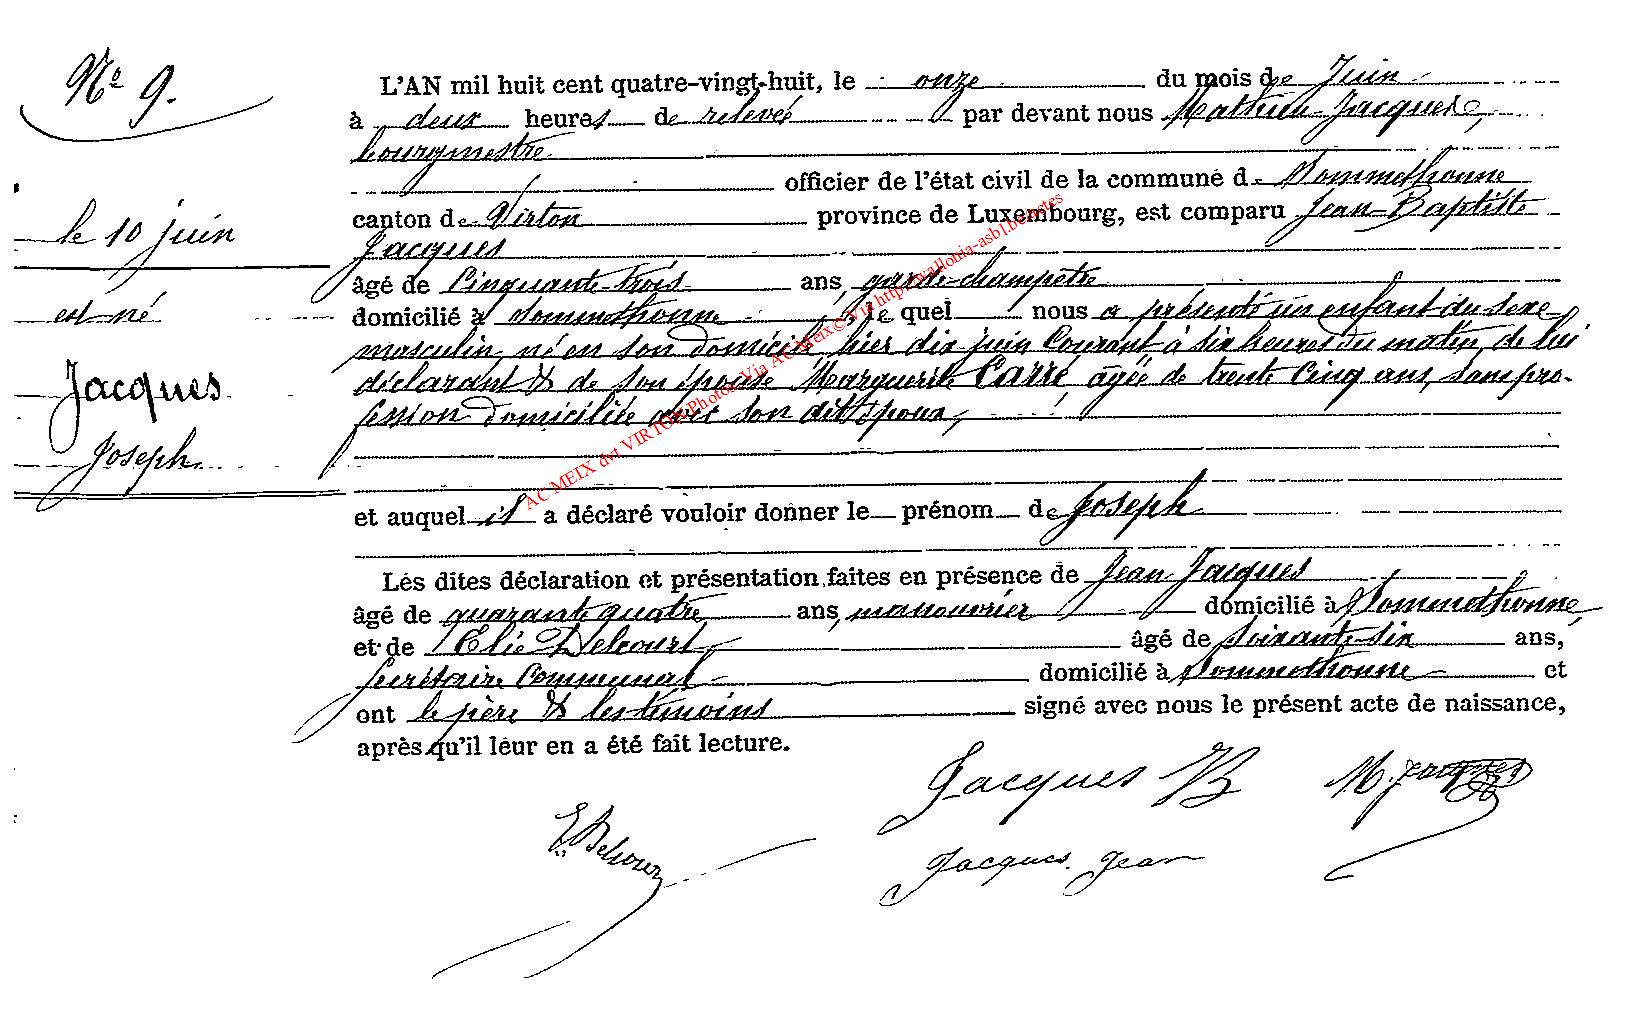 N° 9.
le 10 juin
est né
Jacques
Joseph
L'AN mil huit cent quatre-vingt-huit, le onze du mois de Juin
à deux heures de relevée par devant nous Mathieu Jacques,
bourgmestre
officier de l'état civil de la commune de Sommethonne
canton de Virton province de Luxembourg, est comparu Jean-Baptiste
Jacques
âgé de Cinquante-trois ans, garde-champêtre
domicilié à Sommethonne, lequel nous a présenté un enfant du sexe
masculin, né en son domicile, hier dix juin Courant à six heures du matin, de lui
déclarant & de son épouse Marguerite Carré, agée de trente Cinq ans, sans pro-
fession domiciliée avec son dit époux,
et auquel il a déclaré vouloir donner le prénom de Joseph
Les dites déclaration et présentation faites en présence de Jean Jacques
âgé de quarante quatre ans, manouvrier domicilié à Sommethonne,
et de Elie Delcourt âgé de soixante-six ans,
secrétaire Communal domicilié à Sommethonne et
ont le père & les témoins signé avec nous le présent acte de naissance,
après qu'il leur en a été fait lecture.
Jacques JB M. Jacques
E. Delcour
Jacques. Jean
AC MEIX dvt VIRTON Photos Via AC Meix© Via http://wallonia-asbl.be/actes